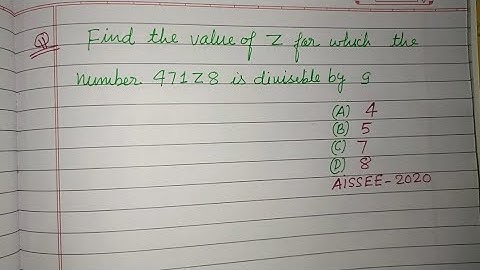 Q Find the value of Z for which the
number 471Z8 is divisible by 9
(A) 4
(B) 5
(C) 7
(D) 8
AISSEE-2020